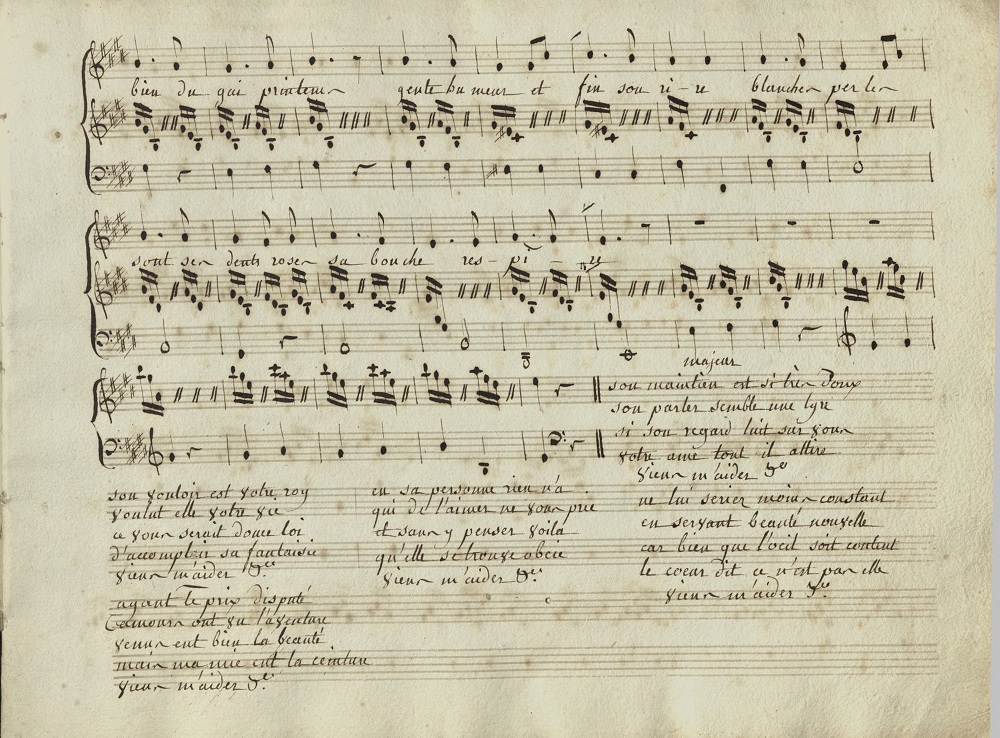 bien du gai printems gente humeur et fin sou ri - re blanches perles
sont ses dents roses sa bouche res - pi - re
majeur
son maintien est si très doux
son parler semble une lyre
si son regard luit sur vous
votre ame tout il attire
viens m'aider &c
son vouloir est votre roy
voulut elle votre vie
ce vous serait douce loi
d'accomplir sa fantaisie
viens m'aider &c
en sa personne rien n'a
qui de l'aimer ne vous prie
et sans y penser voila
qu'elle se trouve obeie
viens m'aider &c
ne lui seriez moins constant
en servant beauté nouvelle
car bien que l'oeil soit content
le coeur dit ce n'est pas elle
viens m'aider &c
ayant le prix disputé
Cesmours ont vu l'aventure
venus eut bien la beauté
mais ma mie eut la ceinture
viens m'aider &c